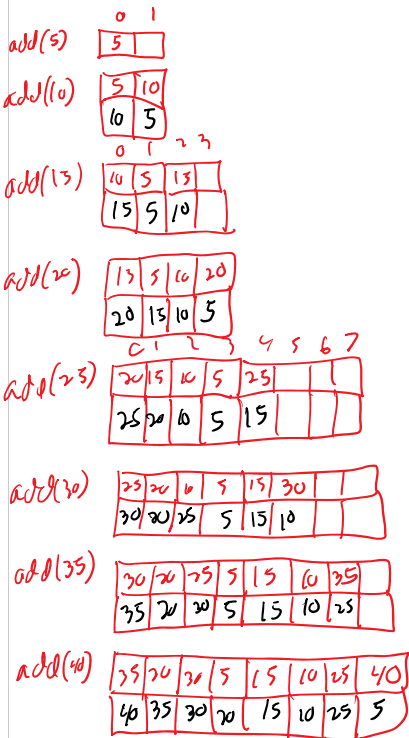 0 1
add(5) 5
add(10) 5 10
10 5
0 1 2 3
add(15) 10 5 15
15 5 10
add(20) 15 5 10 20
20 15 10 5
0 1 2 3 4 5 6 7
add(25) 20 15 10 5 25
25 20 10 5 15
add(30) 25 20 10 5 15 30
30 20 25 5 15 10
add(35) 30 20 25 5 15 10 35
35 20 30 5 15 10 25
add(40) 35 20 30 5 15 10 25 40
40 35 30 20 15 10 25 5